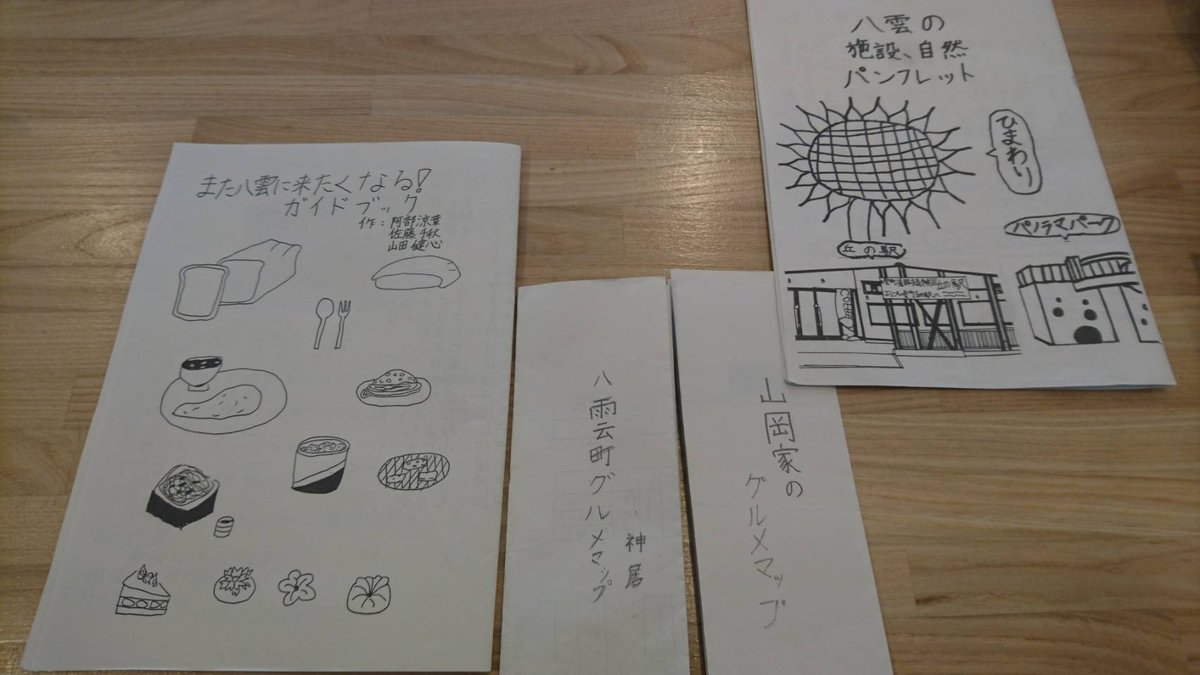 また八雲に来たくなる!
ガイドブック
作:阿部涼葉
佐藤千秋
山田健心
八雲町グルメマップ
神居
山岡家の
グルメマップ
八雲の
施設、自然
パンフレット
ひまわり
パノラマパーク
丘の駅
COFFEE